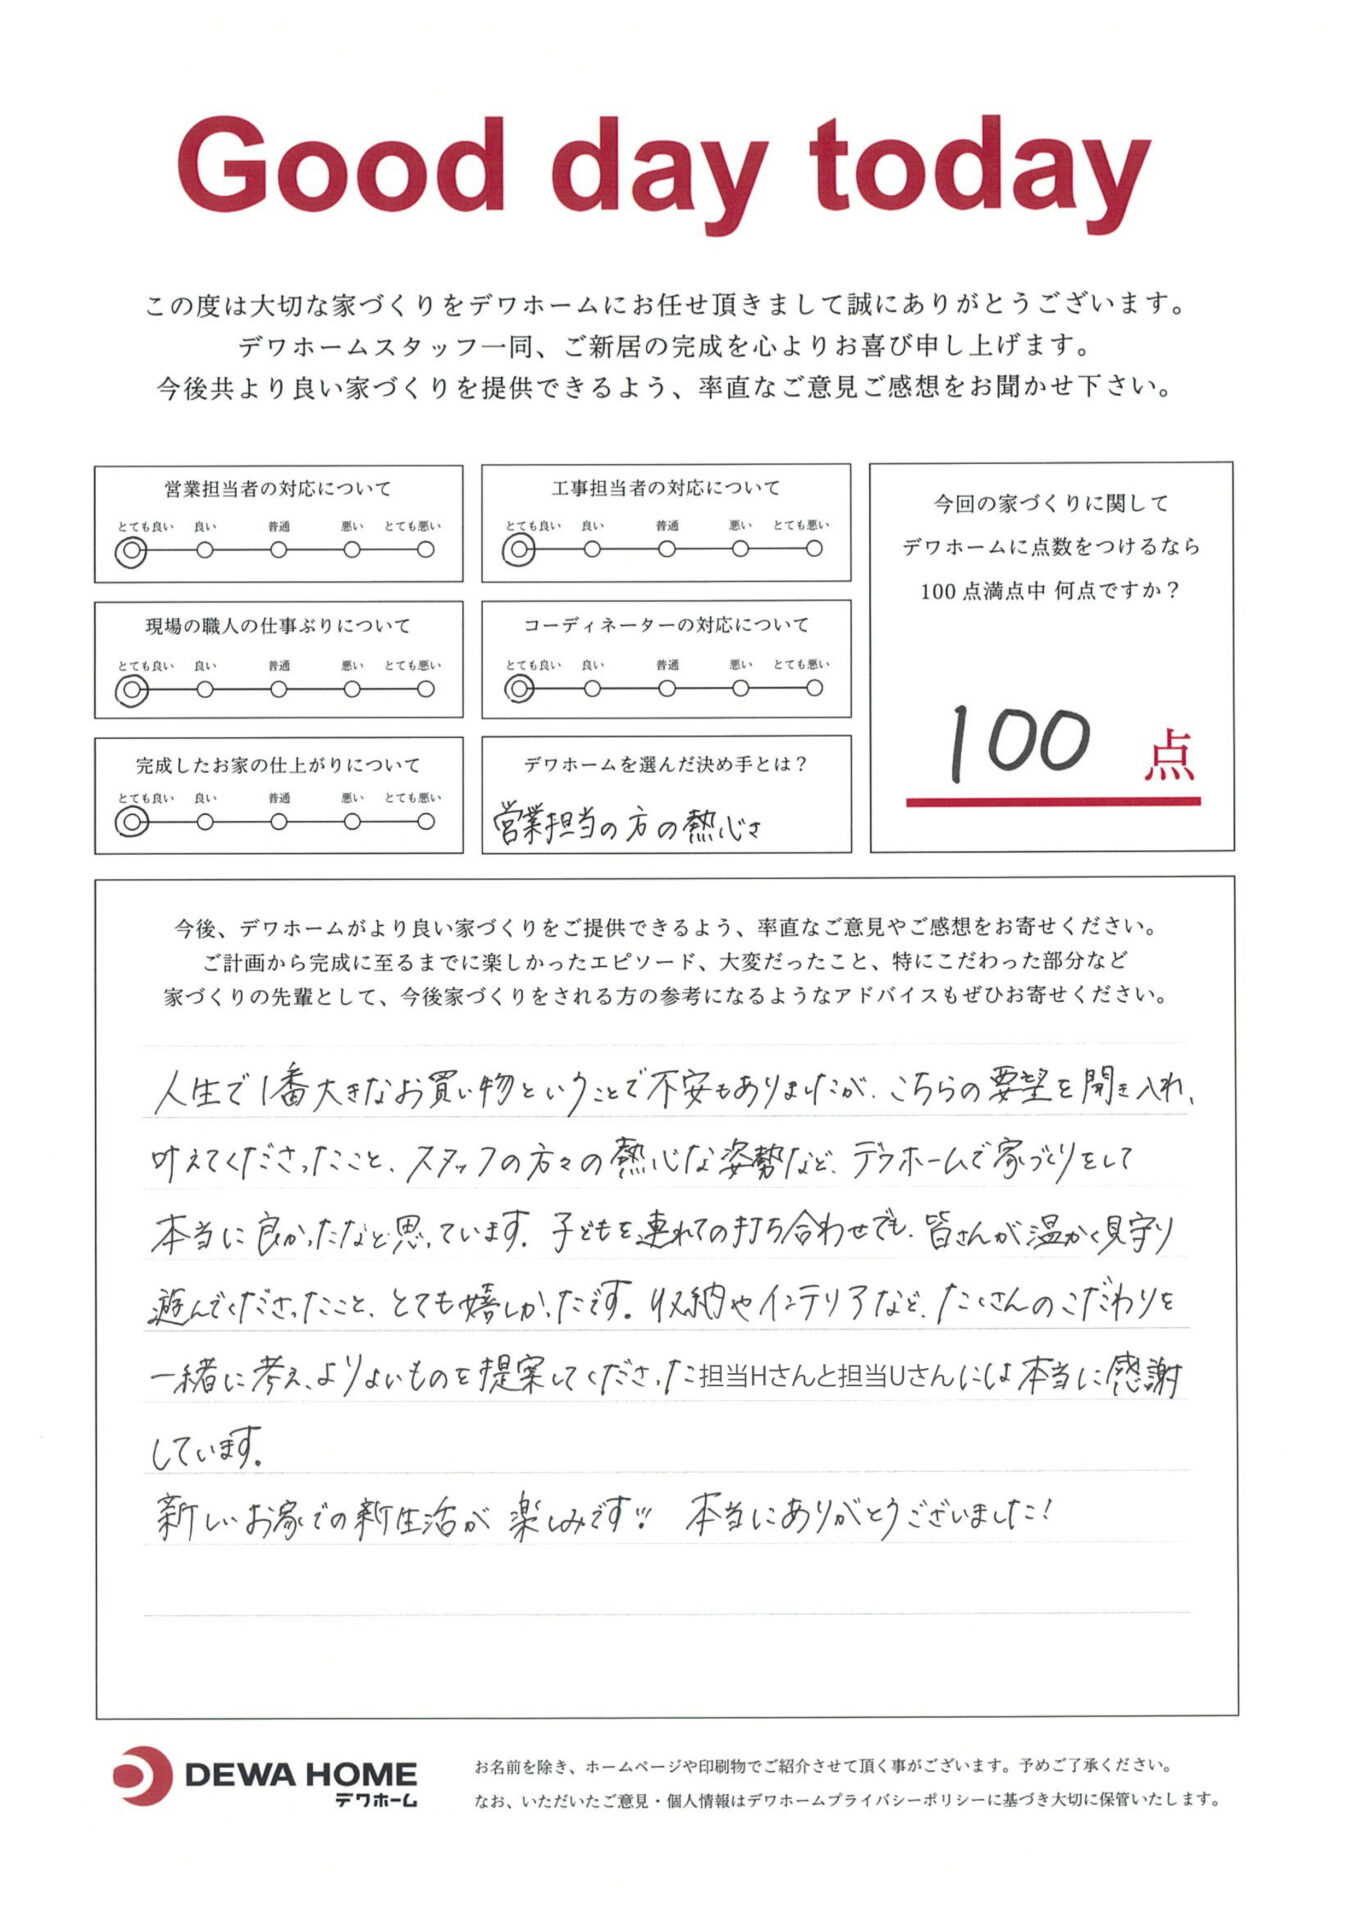 Good day today
この度は大切な家づくりをデワホームにお任せ頂きまして誠にありがとうございます。
デワホームスタッフ一同、ご新居の完成を心よりお喜び申し上げます。
今後共より良い家づくりを提供できるよう、率直なご意見ご感想をお聞かせ下さい。
営業担当者の対応について
とても良い 良い 普通 悪い とても悪い
工事担当者の対応について
とても良い 良い 普通 悪い とても悪い
今回の家づくりに関して
デワホームに点数をつけるなら
100点満点中 何点ですか？
100 点
現場の職人の仕事ぶりについて
とても良い 良い 普通 悪い とても悪い
コーディネーターの対応について
とても良い 良い 普通 悪い とても悪い
完成したお家の仕上がりについて
とても良い 良い 普通 悪い とても悪い
デワホームを選んだ決め手とは？
営業担当の方の熱心さ
今後、デワホームがより良い家づくりをご提供できるよう、率直なご意見やご感想をお寄せください。
ご計画から完成に至るまでに楽しかったエピソード、大変だったこと、特にこだわった部分など
家づくりの先輩として、今後家づくりをされる方の参考になるようなアドバイスもぜひお寄せください。
人生で1番大きなお買い物ということで不安もありましたが、こちらの要望を聞き入れ、
叶えてくださったこと、スタッフの方々の熱心な姿勢など、デワホームで家づくりをして
本当に良かったなと思っています。子どもを連れての打ち合わせでも、皆さんが温かく見守り
遊んでくださったこと、とても嬉しかったです。収納やインテリアなど、たくさんのこだわりを
一緒に考え、よりよいものを提案してくださった担当Hさんと担当Uさんには本当に感謝
しています。
新しいお家での新生活が楽しみです!! 本当にありがとうございました!
DEWA HOME
デワホーム
お名前を除き、ホームページや印刷物でご紹介させて頂く事がございます。予めご了承ください。
なお、いただいたご意見・個人情報はデワホームプライバシーポリシーに基づき大切に保管いたします。